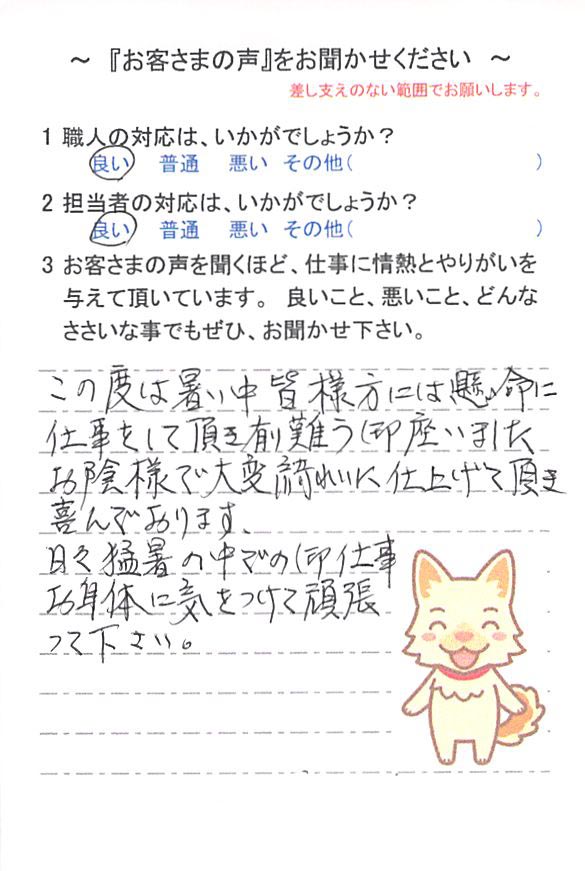 ～ 『お客さまの声』をお聞かせください ～
差し支えのない範囲でお願いします。
1 職人の対応は、いかがでしょうか？
良い 普通 悪い その他( )
2 担当者の対応は、いかがでしょうか？
良い 普通 悪い その他( )
3 お客さまの声を聞くほど、仕事に情熱とやりがいを
与えて頂いています。 良いこと、悪いこと、どんな
ささいな事でもぜひ、お聞かせ下さい。
この度は暑い中皆様方には懸命に
仕事をして頂き有難う御座いました
お陰様で大変綺れいに仕上げて頂き
喜んでおります、
日々猛暑の中での御仕事
お身体に気をつけて頑張
って下さい。